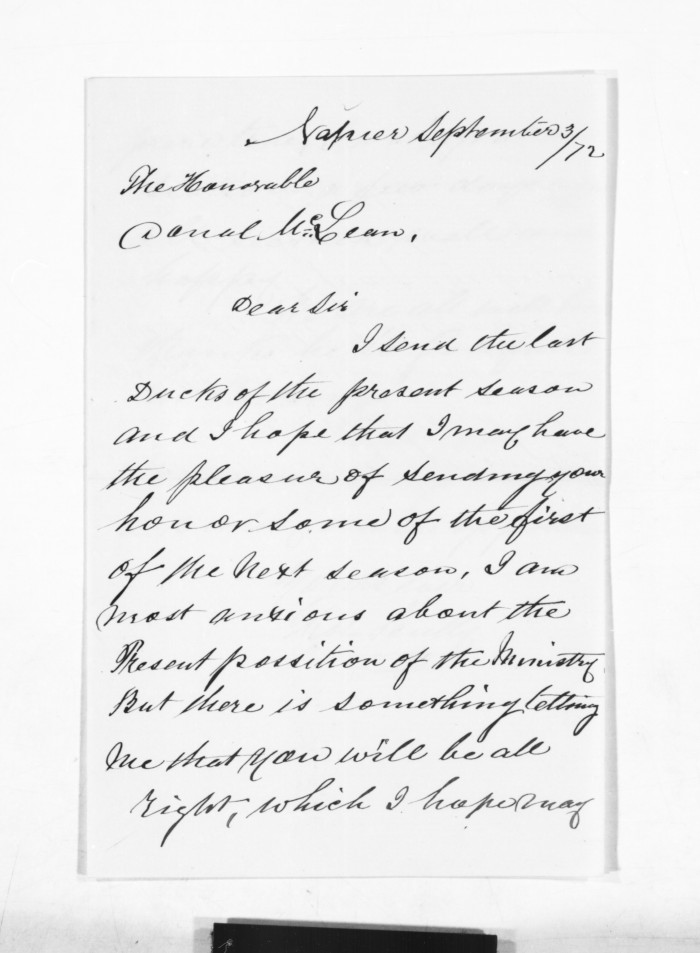 Napier September 3/72
The Honorable
Donal McLean,
Dear Sir
I send the last
Ducks of the present season
and I hope that I may have
the pleasur of sending your
honor some of the first
of the next season, I am
most anxious about the
Present possition of the Ministry.
But there is something telling
me that you will be all
right, which I hope may